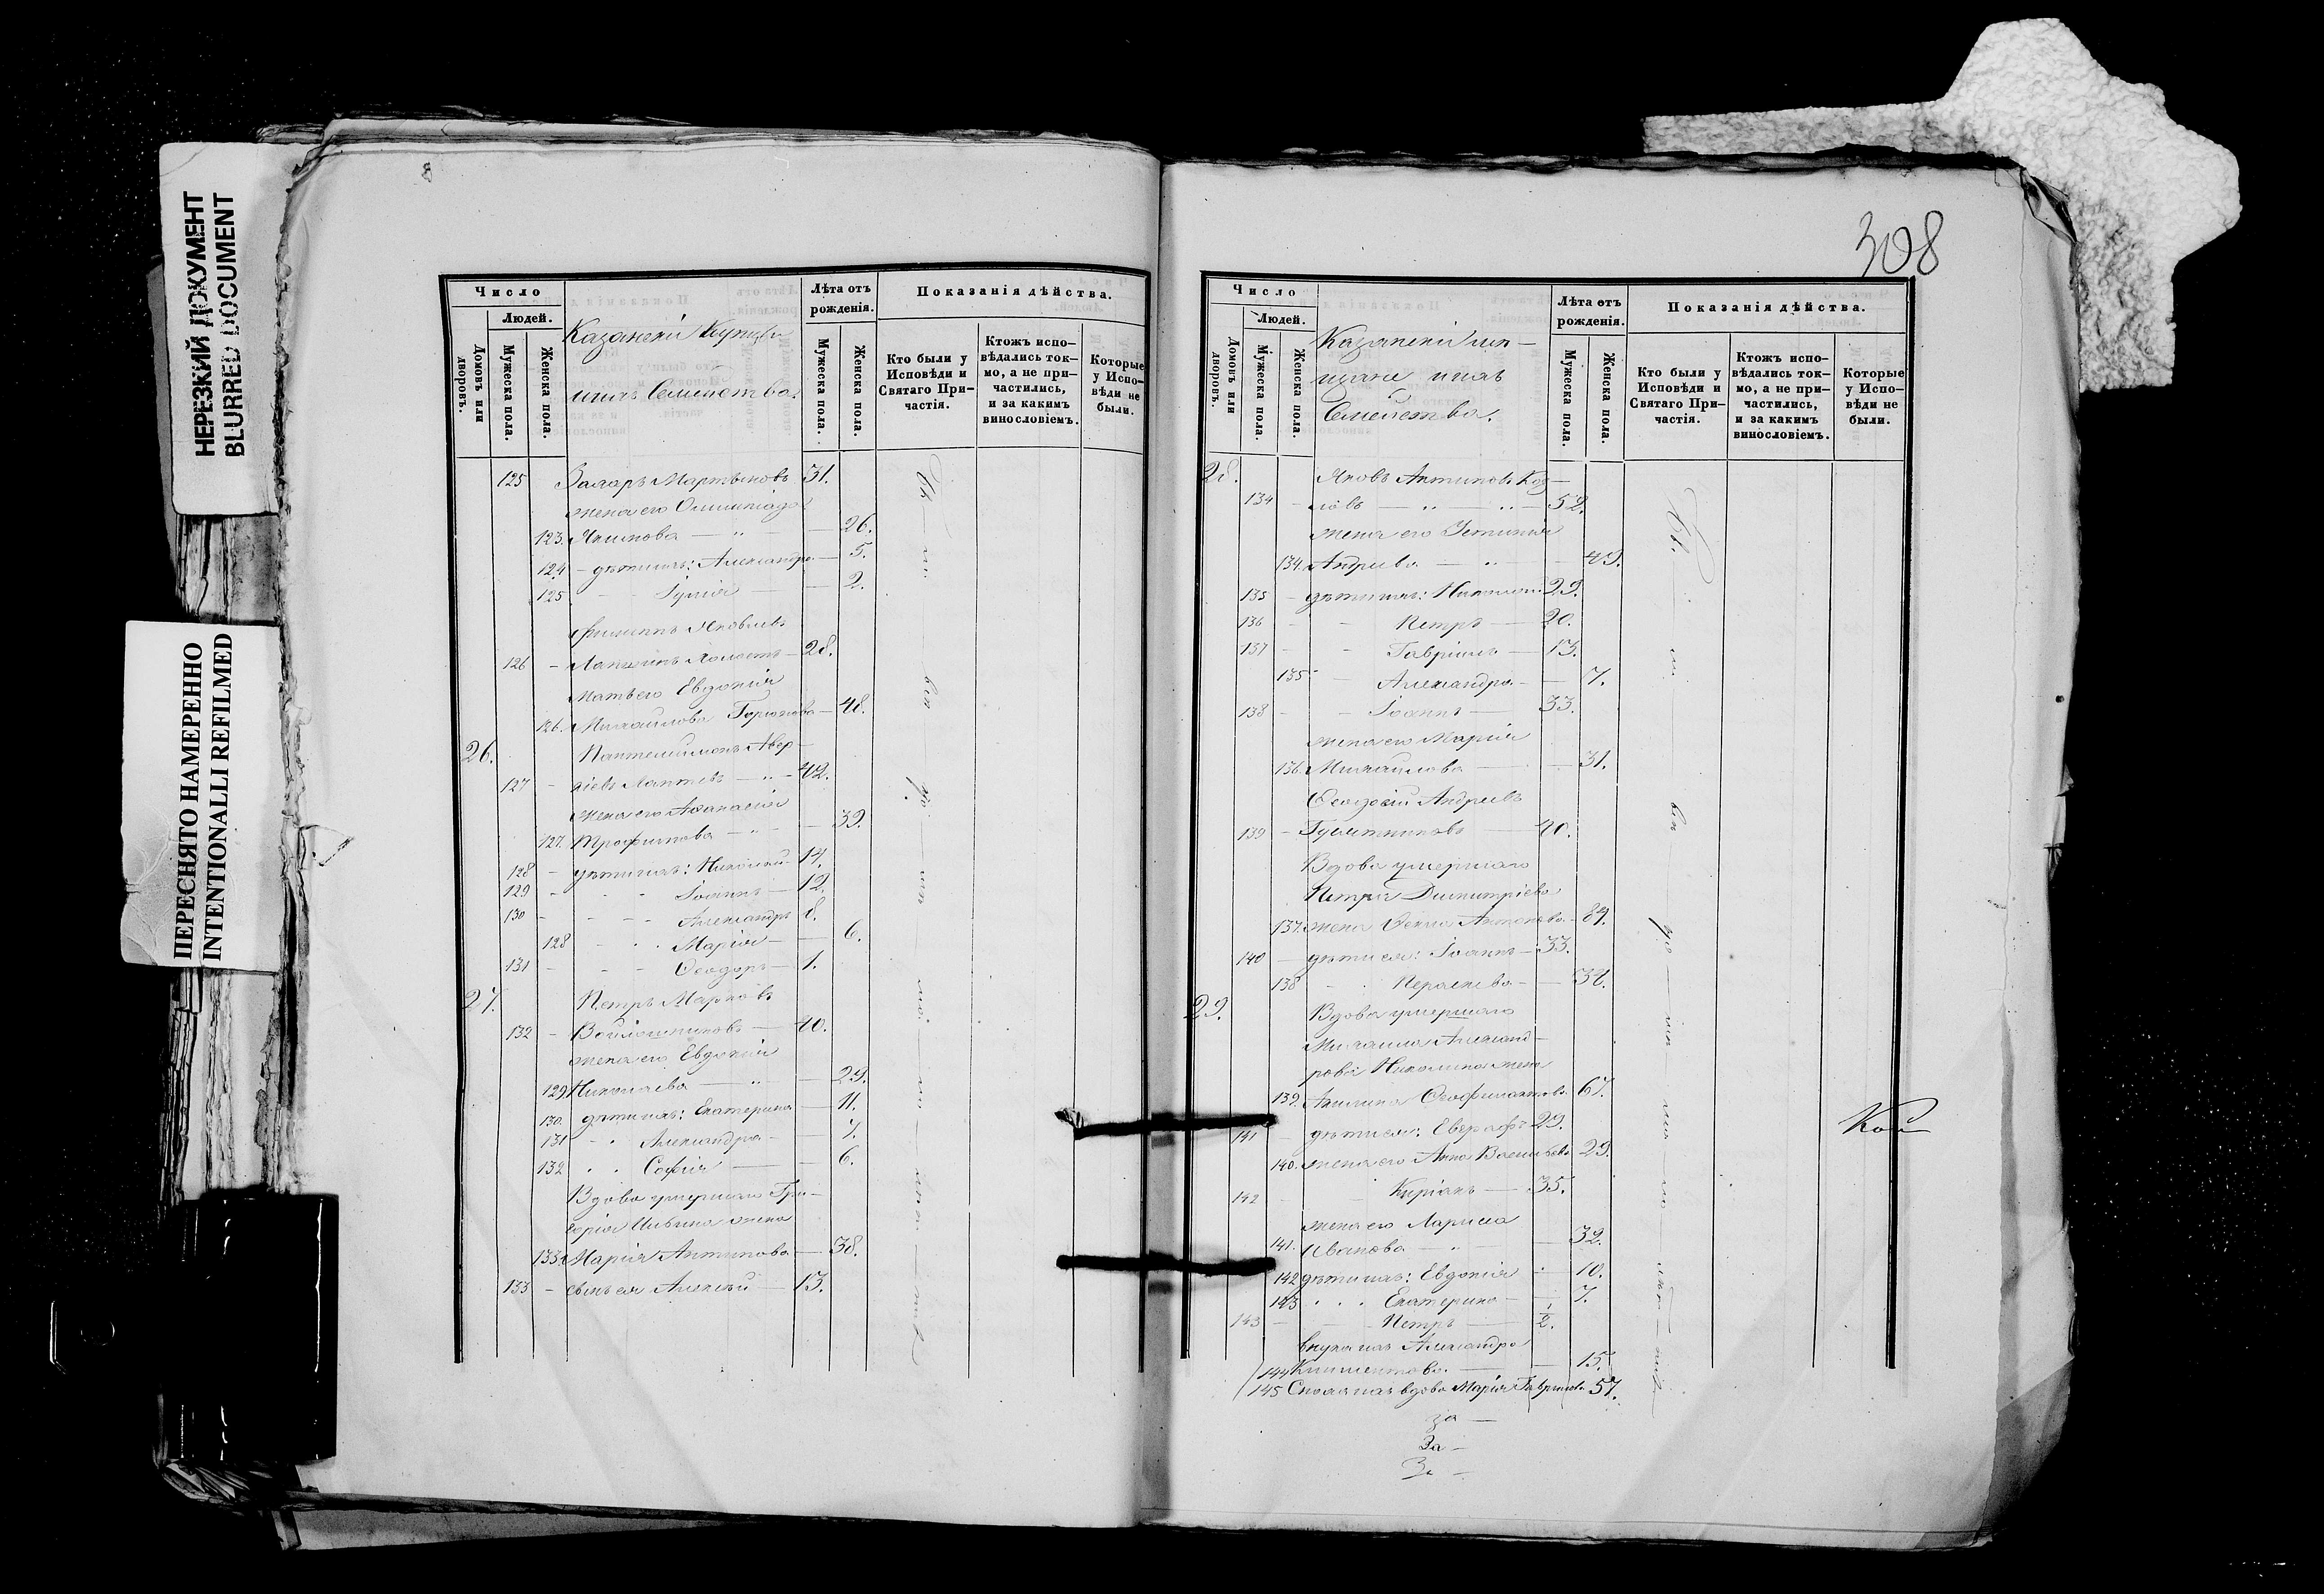 НЕРЕЗКИЙ ДОКУМЕНТ
BLURRED DOCUMENT
ПЕРЕСНЯТО НАМЕРЕННО
INTENTIONALLI REFILMED
8
Число
Людей.
Домовъ или дворовъ.
Мужеска пола.
Женска пола.
Казанскіи Купцы
ихъ Семейства.
Лѣта отъ рожденія.
Мужеска пола.
Женска пола.
Показанія дѣйства.
Кто были у Исповѣди и Святаго Причастія.
Ктожъ исповѣдались токмо, а не причастились, и за какимъ винословіемъ.
Которые у Исповѣди не были.
125 Захаръ Мартыновъ 31.
жена его Олимпіада
123. Якимова — 26.
124 - дѣти ихъ: Александра — 5.
125 Іулія — 2.
Филиппъ Яковлевъ
126 - Лапшинъ холостъ — 28.
Мать его Евдокія
126. Михайлова — 48.
26. Пантелеимонъ Авер-
127 - кіевъ Лаптевъ — 42.
жена его Афанасія
127. Трофимова — 39.
128 - дѣти ихъ: Николай 14.
129 - Іоаннъ — 12.
130 - Александръ 8.
128 - Марія — 6.
131 - Ѳеодоръ — 1.
27. Петръ Марковъ
132 - Войлошниковъ — 40.
жена его Евдокія
129 Николаева — 29.
130. дѣти ихъ: Екатерина — 11.
131 - Александра — 7.
132 Софія — 6.
Вдова умершаго Гри-
горія Ильина жена
133. Марія Антипова — 38.
133 - сынъ ея Алексѣй — 13.
308
Число
Людей.
Домовъ или дворовъ.
Мужеска пола.
Женска пола.
Казанскіи мѣ-
щане ихъ
Семейства.
Лѣта отъ рожденія.
Мужеска пола.
Женска пола.
Показанія дѣйства.
Кто были у Исповѣди и Святаго Причастія.
Ктожъ исповѣдались токмо, а не причастились, и за какимъ винословіемъ.
Которые у Исповѣди не были.
28. Яковъ Антиповъ Коз-
134 - ловъ — 52.
жена его Устинія
134. Андреева — 49.
135 - дѣти ихъ: Николай 23.
136 - Петръ — 20.
137 - Гавріилъ — 13.
135 - Александра — 7.
138 - Іоаннъ — 33.
жена его Марія
136. Михайлова — 31.
Ѳеодосій Андреевъ
139 - 40.
Вдова умершаго
Петра Димитріева
137. жена Антонова 89.
140 - дѣти ея: Іоаннъ — 33.
138 - — 34.
29. Вдова умершаго
Михаила Александ-
рова жена
139. Акилина Ѳеофилактова 67.
141 - дѣти ея: Евграфъ 29.
140. жена его Анна Васильева 29.
142 - Киріакъ — 35.
жена его Лариса
141. Иванова — 32.
142 дѣти ихъ: Евдокія — 10.
143 Екатерина — 7.
143 - Петръ — 1/2.
внука ихъ Александра
144 Климентова — 15.
145 вдова Марія Гаврилова 57.
за —
За —
За —